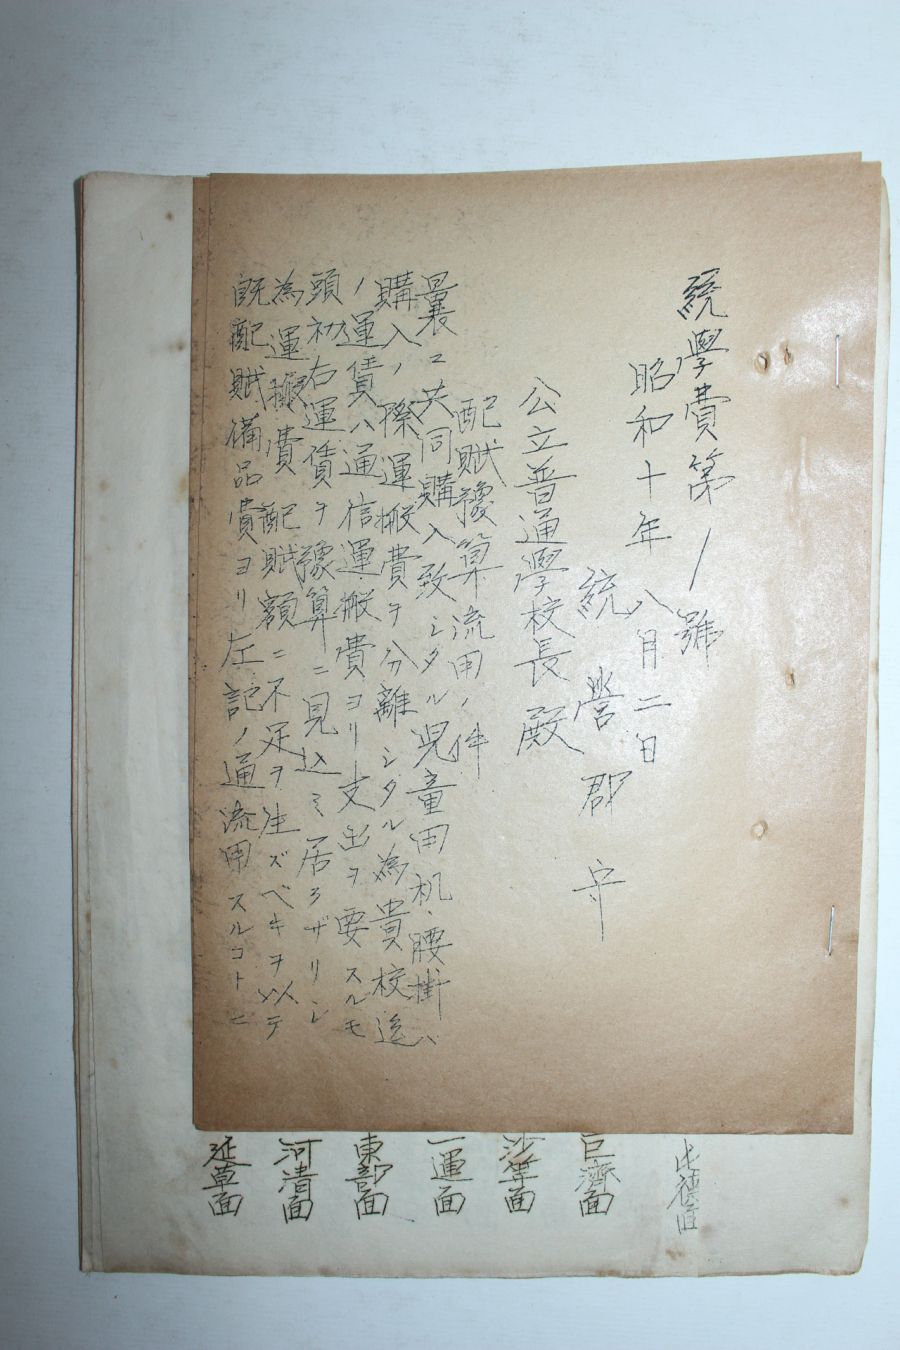 統學費第1號
昭和十年八月二日
統營郡守
公立普通學校長殿
配賦豫算流用ノ件
曩ニ共同購入致シタル児童用机、腰掛ハ
購入ノ際運搬費ヲ分離シタル為貴校迄
ノ運賃ハ通信運搬費ヨリ支出ヲ要スルモ
頭初右運賃ヲ豫算ニ見込ミ居ラザリシ
為運搬費配賦額ニ不足ヲ生ズベキヲ以テ
既配賦備品費ヨリ左記ノ通流用スルコトニ
屯德面
巨濟面
沙等面
一運面
東部面
河清面
延草面